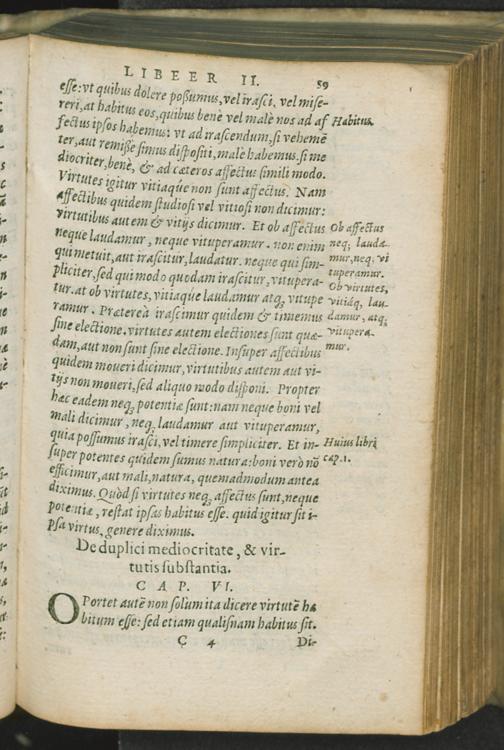 LIBEER II. 59
esse: vt quibus dolere poßumus, vel irasci, vel mise-
reri, at habitus eos, quibus benè vel malè nos ad af
fectus ipsos habemus: vt ad irascendum, si vehemẽ
ter, aut remisse simus dispositi, malè habemus, si me
diocriter, benè, & ad cæteros affectus simili modo.
Virtutes igitur vitiaque non sunt affectus. Nam
affectibus quidem studiosi vel vitiosi non dicimur:
virtutibus autem & vitijs dicimur. Et ob affectus
neque laudamur, neque vituperamur. non enim
qui metuit, aut irascitur, laudatur. neque qui sim-
pliciter, sed qui modo quodam irascitur, vitupera-
tur. at ob virtutes, vitiaque laudamur atq; vitupe
ramur. Prætereà irascimur quidem & timemus
sine electione. virtutes autem electiones sunt quæ-
dam, aut non sunt sine electione. Insuper affectibus
quidem moueri dicimur, virtutibus autem aut vi-
tijs non moueri, sed aliquo modo disponi. Propter
hac eadem neq; potentiæ sunt: nam neque boni vel
mali dicimur, neq; laudamur aut vituperamur,
quia possumus irasci, vel timere simpliciter. Et in-
super potentes quidem sumus natura: boni verò nõ
efficimur, aut mali, natura, quemadmodum antea
diximus. Quòd si virtutes neq; affectus sunt, neque
potentiæ, restat ipsas habitus esse. quid igitur sit i-
psa virtus, genere diximus.
Habitus.
Ob affectus
neq; lauda-
mur, neq; vi
tuperamur.
Ob virtutes,
vitiáq; lau-
damur, atq;
vitupera-
mur.
Huius libri
cap. 1.
De duplici mediocritate, & vir-
tutis substantia.
CAP. VI.
OPortet autẽ non solùm ita dicere virtutẽ ha
bitum esse: sed etiam qualisnam habitus sit.
C 4 Di-